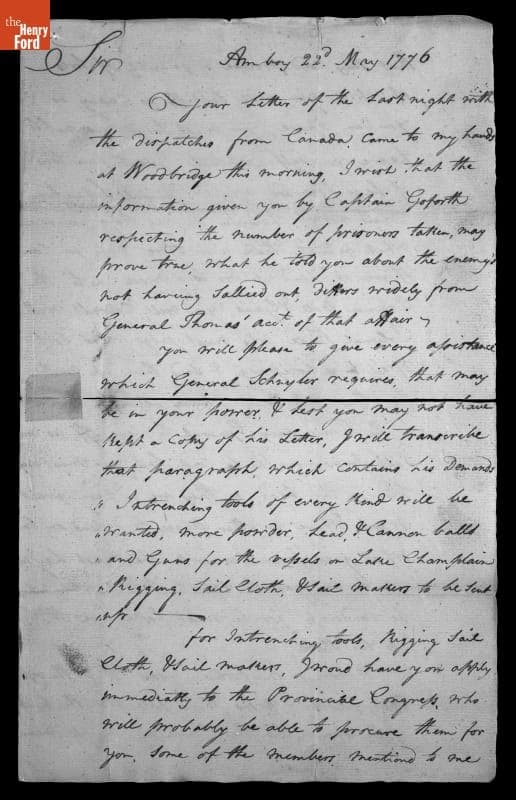 the
Henry
Ford
Sir
Amboy 22d. May 1776
Your Letter of the last night with
the dispatches from Canada, came to my hands
at Woodbridge this morning, I wish that the
information given you by Captain Goforth
respecting the number of prisoners taken, may
prove true, what he told you about the enemy's
not having sallied out, differs widely from
General Thomas' acct. of that affair
you will please to give every assistance
which General Schuyler requires, that may
be in your power, & lest you may not have
kept a Copy of his Letter, I will transcribe
that paragraph, which contains his Demands
"Intrenching tools of every kind will be
"wanted, more powder, lead, & Cannon balls
"and Guns for the vessels on Lake Champlain
"Rigging, Sail Cloth, & Sail makers to be sent
"up
for Intrenching tools, Rigging Sail
Cloth, & Sail makers, I woud have you apply
immediately to the Provincial Congress, who
will probably be able to procure them for
you, some of the members mentiond to me